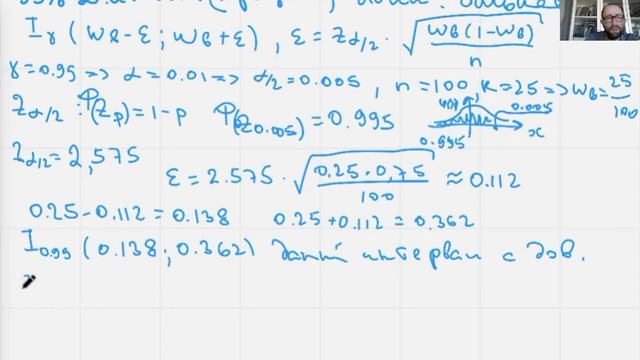 I_γ (W_B - ε ; W_B + ε) , ε = Z_{α/2} · √(W_B (1 - W_B) / n)
γ = 0.95 => α = 0.01 => α/2 = 0.005 , n = 100, K = 25 => W_B = 25/100
Z_{α/2} : Φ(Z_p) = 1 - p Φ(Z_{0.005}) = 0.995
0.005
0.995 x
Z_{α/2} = 2,575
ε = 2.575 · √(0.25 · 0,75 / 100) ≈ 0.112
0.25 - 0.112 = 0.138 0.25 + 0.112 = 0.362
I_{0.99} (0.138 ; 0.362) данный интервал с дов.